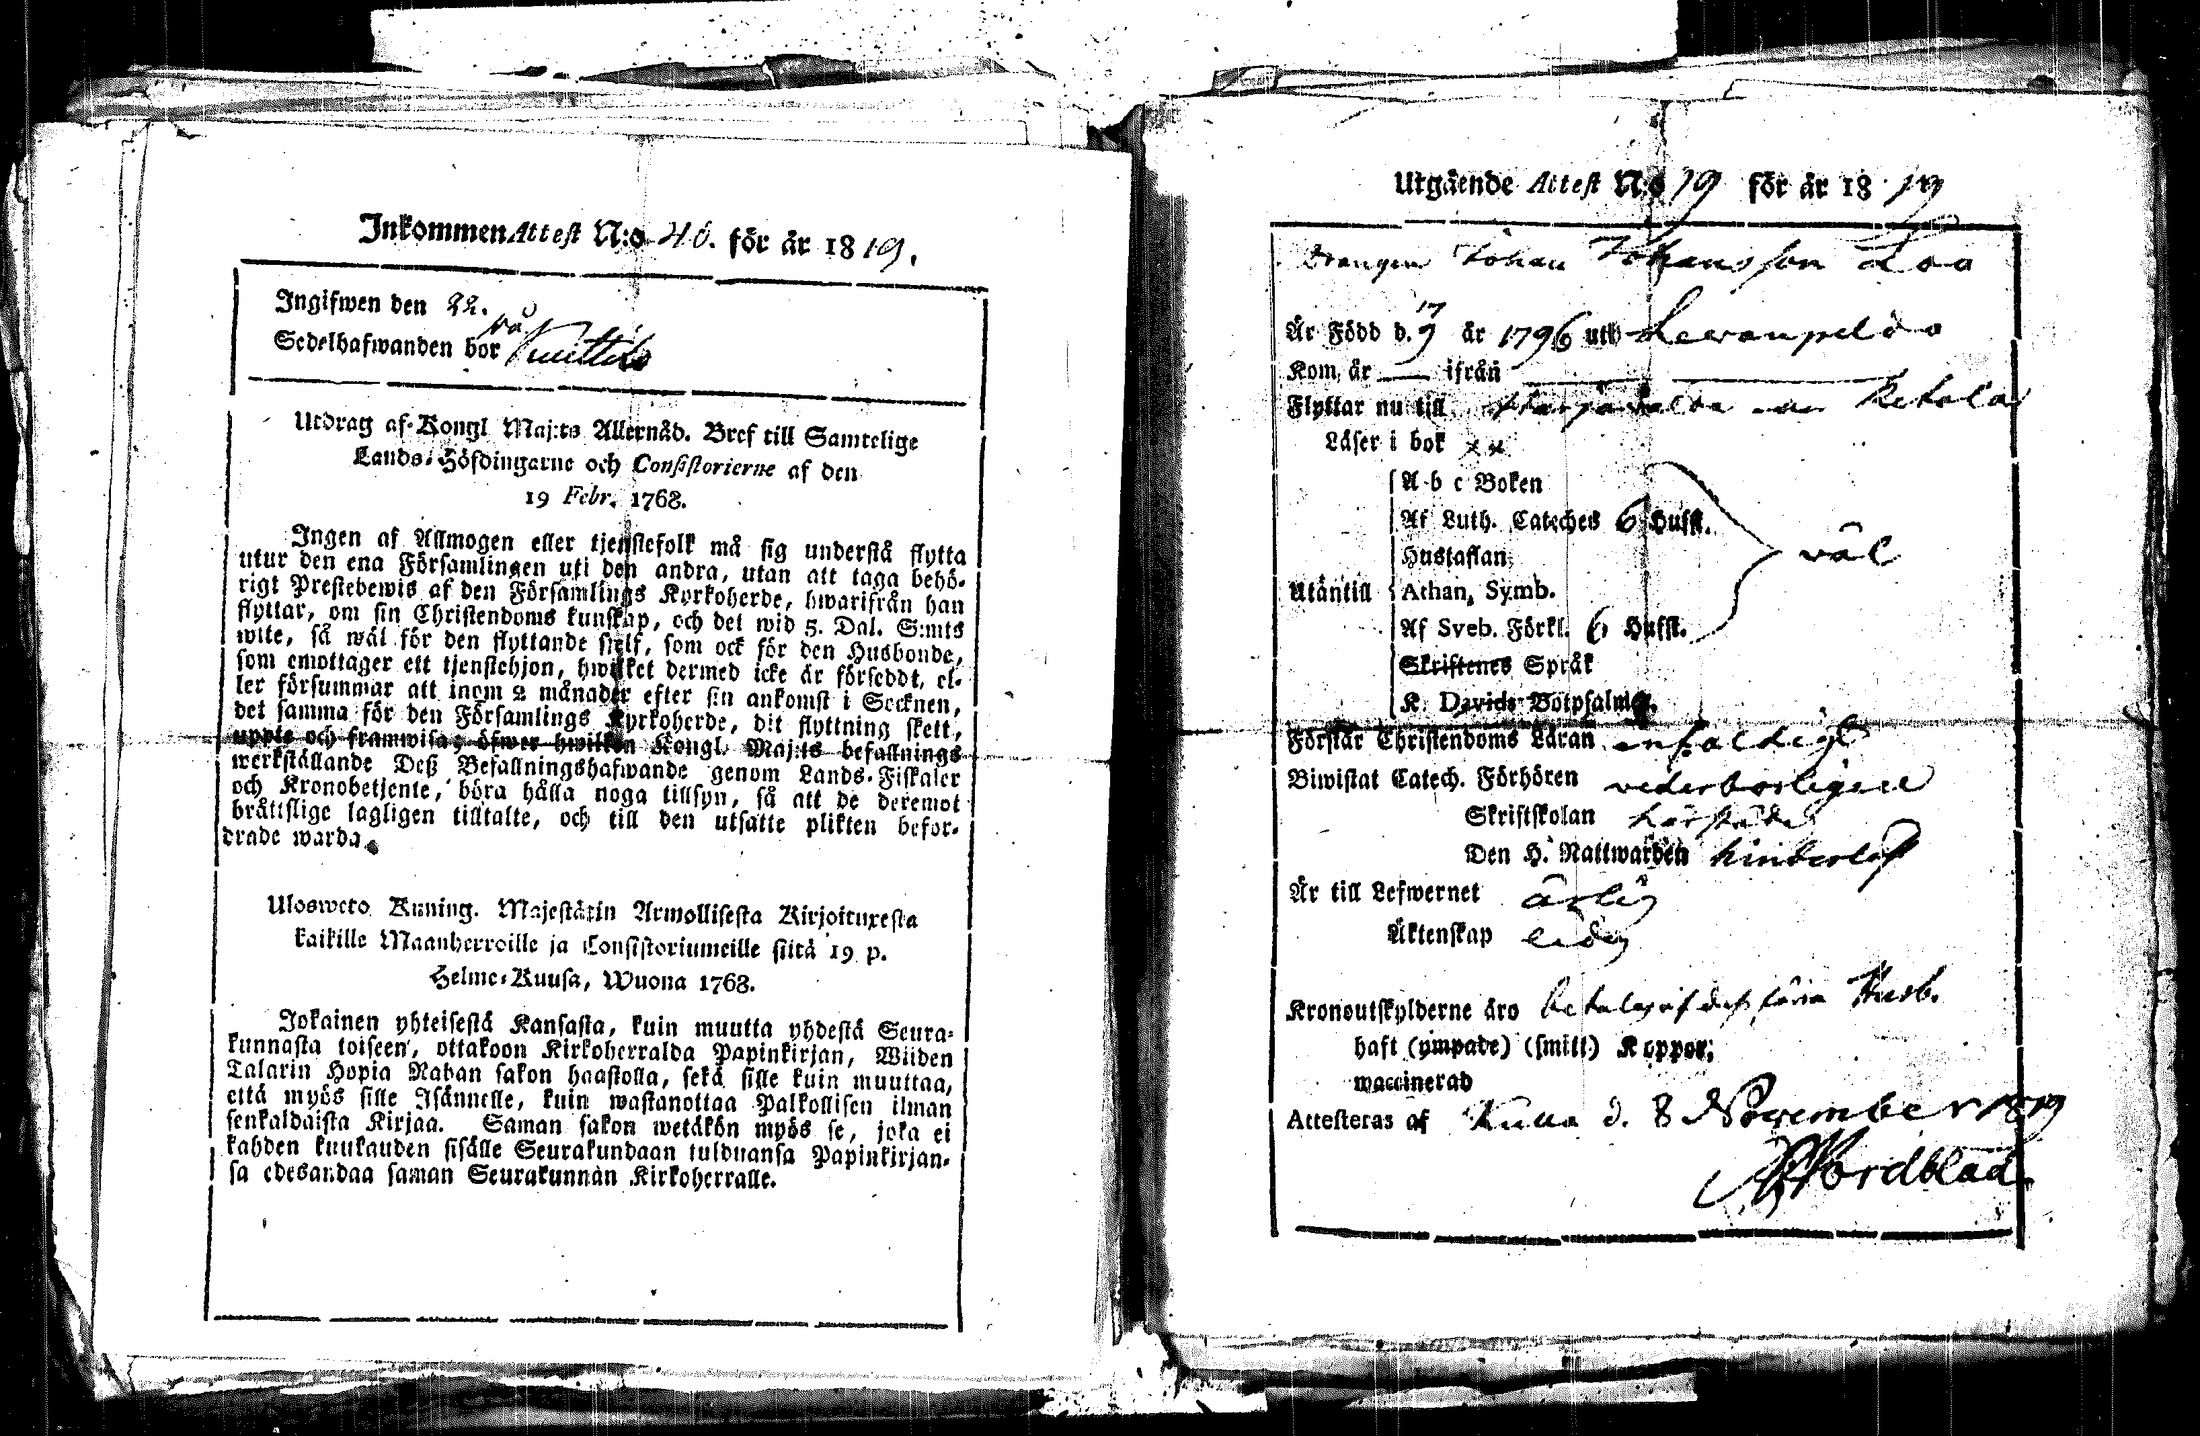 Inkommen Attest N:o 40. för år 1819.
Ingifwen den 22.
Sedelhafwanden bor på
Utdrag af Kongl Maj:ts Allernåd. Bref till Samtelige
Lands-Höfdingarne och Consistorierne af den
19 Febr. 1768.
Ingen af Allmogen eller tjenstefolk må sig understå flytta
utur den ena Församlingen uti den andra, utan att taga behö-
rigt Prestebewis af den Församlings Kyrkoherde, hwarifrån han
flyttar, om sin Christendoms kunskap, och det wid 5. Dal. S:mts
wite, så wäl för den flyttande sjelf, som ock för den Husbonde,
som emottager ett tjenstehjon, hwilket dermed icke är försedt, el-
ler försummar att inom 2 månader efter sin ankomst i Socknen,
det samma för den Församlings Kyrkoherde, dit flyttning skett,
uppte och framwisa; öfwer hwilken Kongl. Maj:ts befallnings
werkställande Deß Befallningshafwande genom Lands-Fiskaler
och Kronobetjente, böra hålla noga tillsyn, så att de deremot
bråttslige lagligen tilltalte, och till den utsatte plikten befor-
drade warda.
Ulosweto Kuning. Majestätin Armollisesta Kirjoituxesta
kaikille Maanherroille ja Consistoriumeille siitä 19 p.
Helme-Kuusa, Wuona 1768.
Jokainen yhteisestä Kansasta, kuin muutta yhdestä Seura-
kunnasta toiseen, ottakoon Kirkoherralda Papinkirjan, Wiiden
Talarin Hopia Rahan sakon haastolla, sekä sille kuin muuttaa,
että myös sille Isännelle, kuin wastanottaa Palkollisen ilman
senkaldaista Kirjaa. Saman sakon wetäkön myös se, joka ei
kahden kuukauden sisälle Seurakundaan tulduansa Papinkirjan-
sa edesandaa saman Seurakunnan Kirkoherralle.
Utgäende Attest N:o 19 för år 1819
Drängen Johan Johansson Loa
Är Född d. 17/9 år 1796 uth Levanpeldo
Kom år — ifrån
Flyttar nu till Ketola
Läser i bok xx
A b c Boken
Af Luth. Cateches 6 Hufst.
Hustaflan
väl
Utantill Athan. Symb.
Af Sveb. Förkl. 6 Hufst.
Skriftenes Språk
K. Davids Botpsalmer.
Förstår Christendoms Läran enfaldigt
Biwistat Catech. Förhören vederbörligen
Skriftskolan härstädes
Den H. Nattwarden hinderlöst
Är till Lefwernet ärlig
Äktenskap ledig
Kronoutskylderne äro betalas af dess förra Husb.
haft (ympade) (smitt) Koppor.
waccinerad
Attesteras af d. 8 November 1819
Nordblad